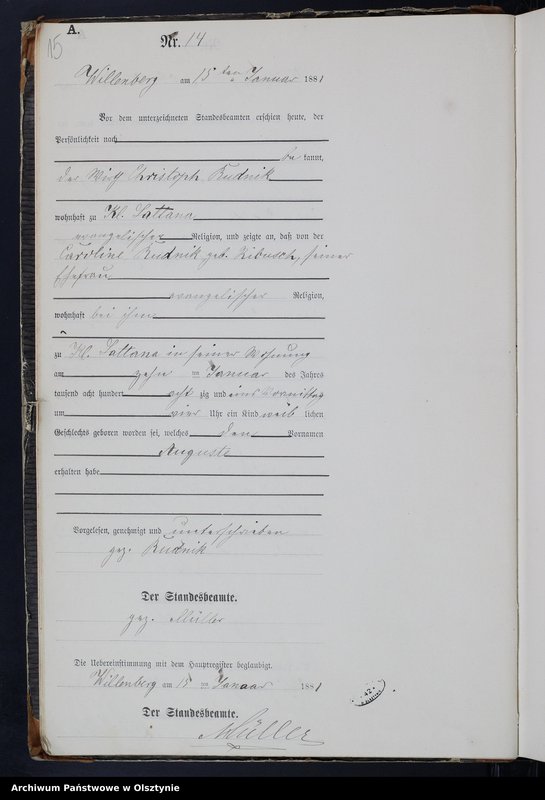 15
A.
Nr. 14
Willenberg am 15 ten Januar 1881
Vor dem unterzeichneten Standesbeamten erschien heute, der
Persönlichkeit nach
be kannt,
der Wirth Christoph Rudnik
wohnhaft zu Kl. Lattana
evangelischer Religion, und zeigte an, daß von der
Caroline Rudnik geb. Ribusch, seiner
Ehefrau
evangelischer Religion,
wohnhaft bei ihm
zu Kl. Lattana in seiner Wohnung
am zehn ten Januar des Jahres
tausend acht hundert acht zig und eins Vormittag
um vier Uhr ein Kind weib lichen
Geschlechts geboren worden sei, welches den Vornamen
Auguste
erhalten habe
Vorgelesen, genehmigt und unterschrieben
gez. Rudnik
Der Standesbeamte.
gez. Müller
Die Uebereinstimmung mit dem Hauptregister beglaubigt.
Willenberg am 15 ten Januar 1881
Der Standesbeamte.
Müller
Archiwum Państwowe w Olsztynie